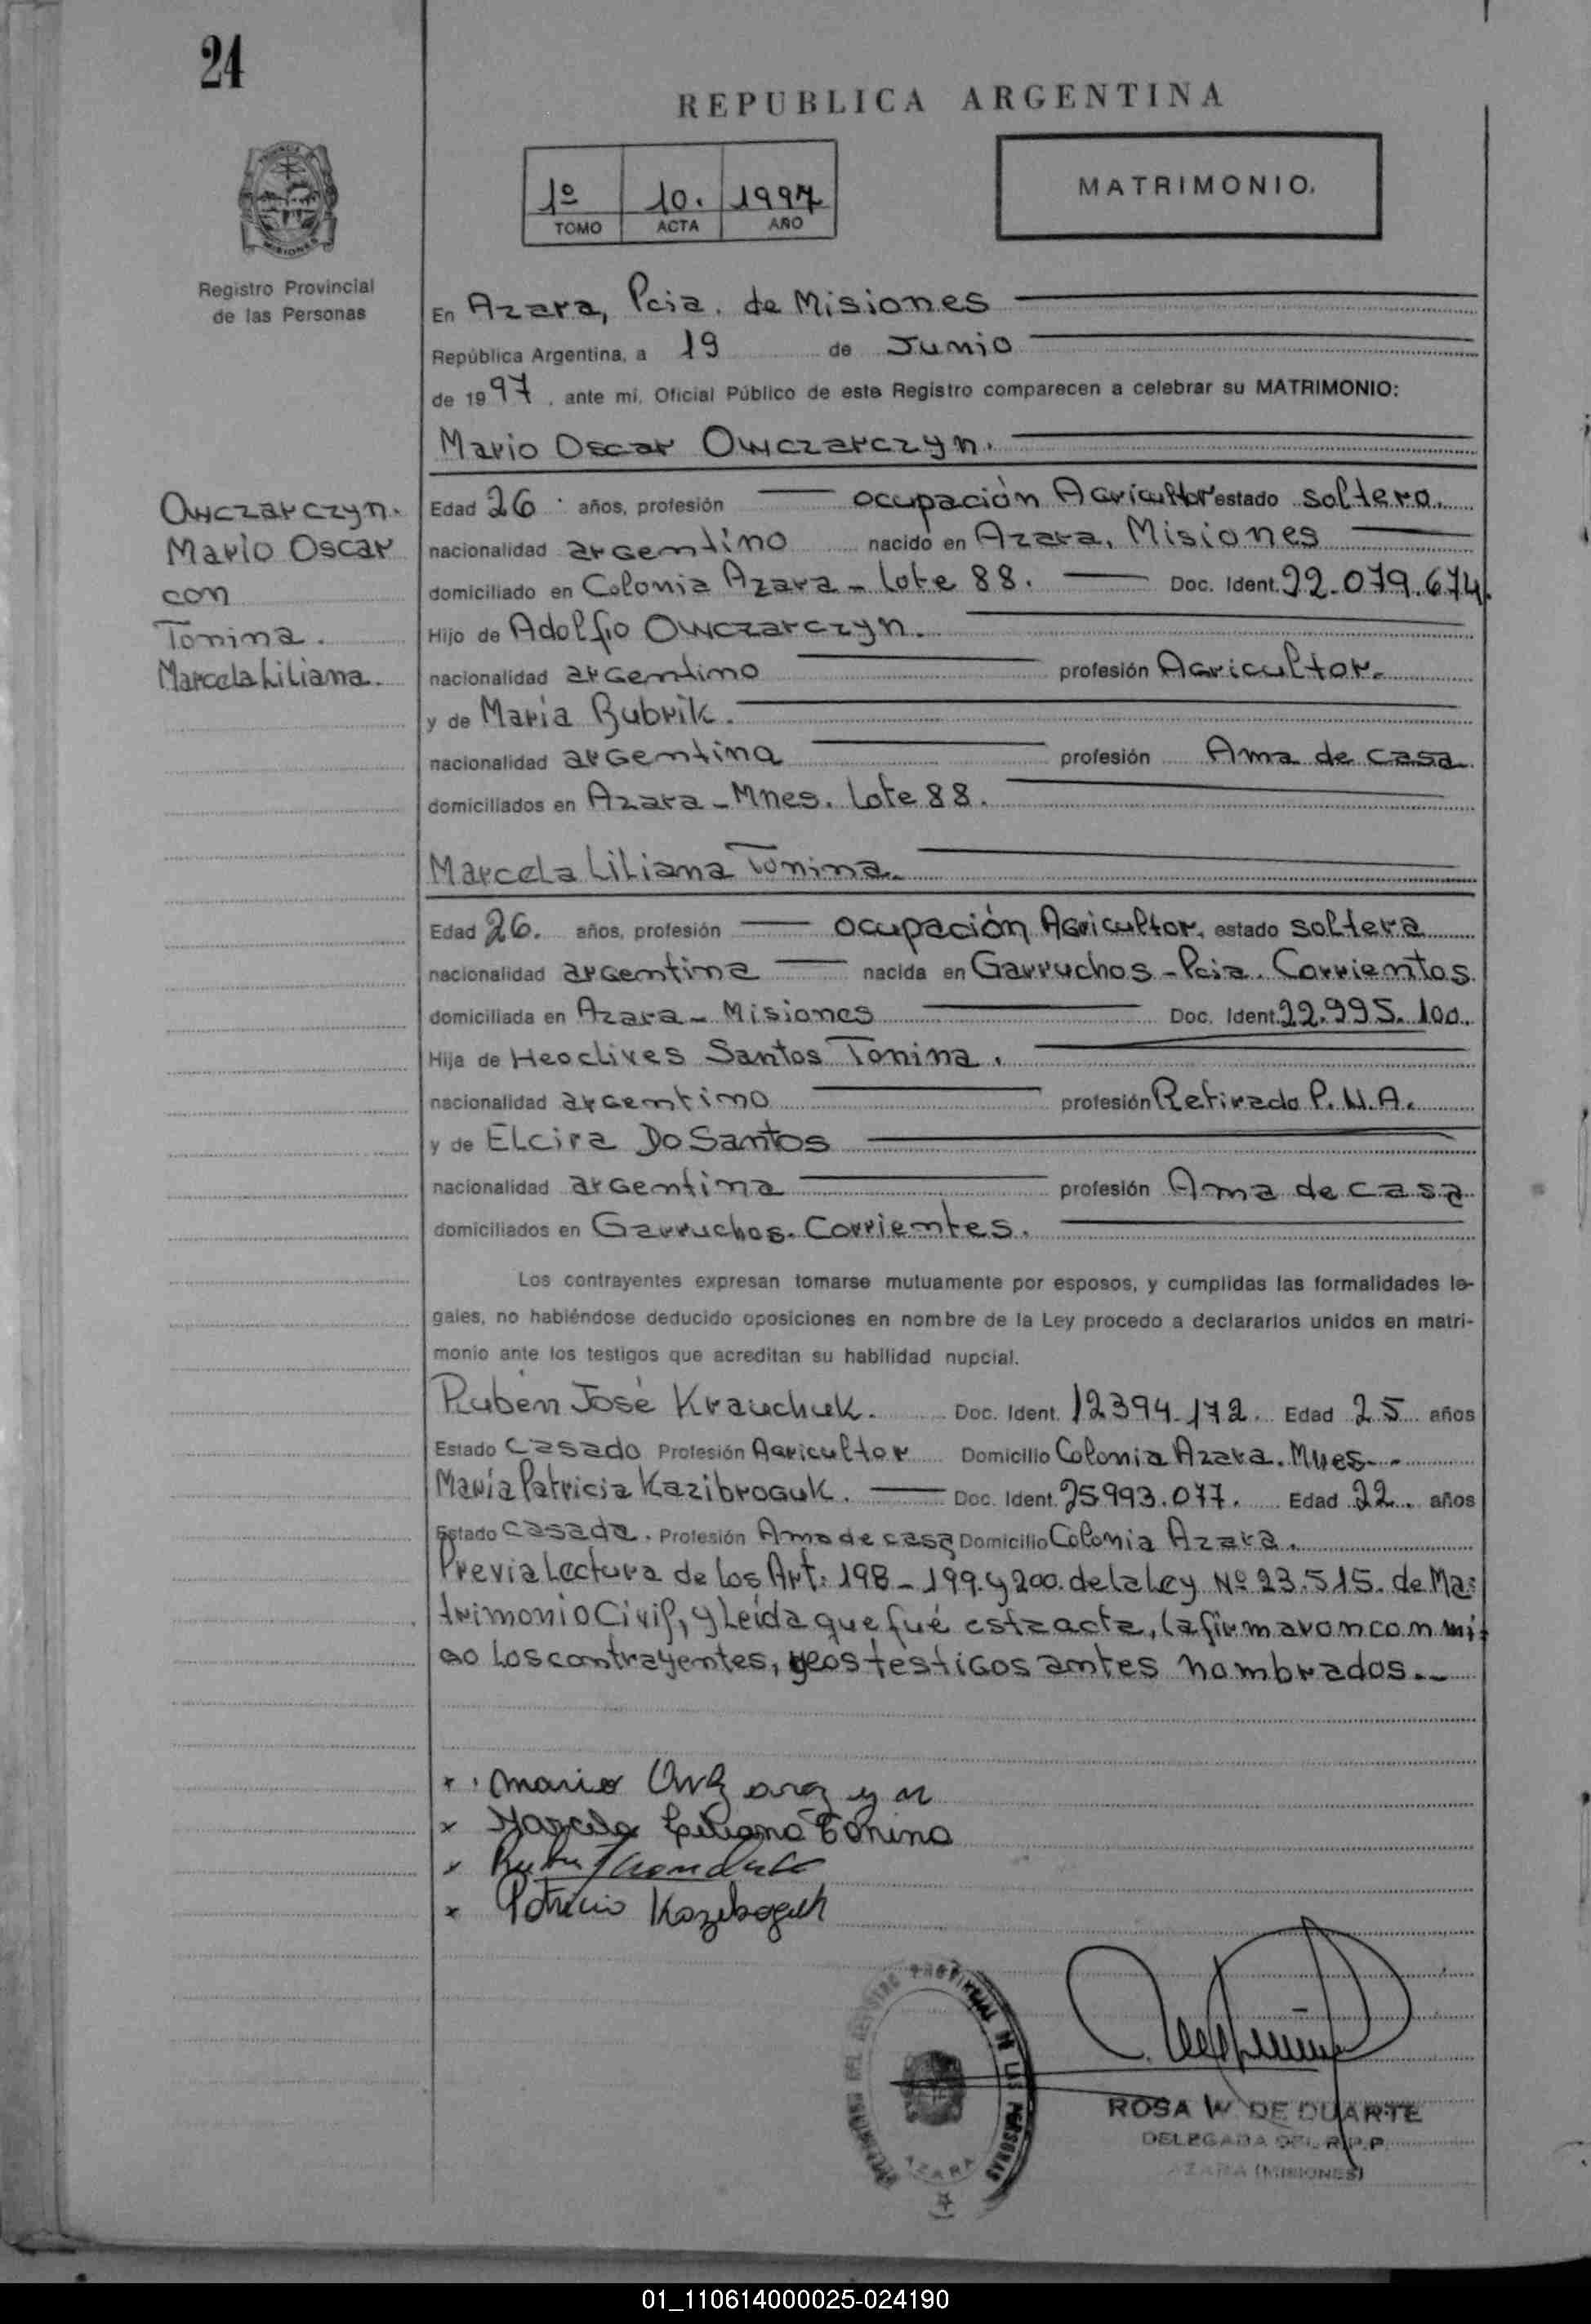 24
REPUBLICA ARGENTINA
1º 10. 1997
TOMO ACTA AÑO
MATRIMONIO.
PROVINCIA
MISIONES
Registro Provincial
de las Personas
En Azara, Pcia. de Misiones
República Argentina, a 19 de Junio
de 1997, ante mi, Oficial Público de este Registro comparecen a celebrar su MATRIMONIO:
Mario Oscar Owczarczyn.
Owczarczyn.
Mario Oscar
con
Tonina.
Marcela Liliana.
Edad 26 años, profesión — ocupación Agricultor estado soltero.
nacionalidad argentino nacido en Azara, Misiones
domiciliado en Colonia Azara - Lote 88. Doc. Ident. 22.079.674.
Hijo de Adolfio Owczarczyn.
nacionalidad argentino profesión Agricultor.
y de María Bubrik.
nacionalidad argentina profesión Ama de casa
domiciliados en Azara - Mnes. Lote 88.
Marcela Liliana Tonina.
Edad 26. años, profesión — ocupación Agricultor, estado soltera
nacionalidad argentina nacida en Garruchos - Pcia. Corrientes
domiciliada en Azara - Misiones Doc. Ident. 22.995.100.
Hija de Heoclives Santos Tonina.
nacionalidad argentino profesión Retirado P.N.A.
y de Elcira Do Santos
nacionalidad argentina profesión Ama de casa
domiciliados en Garruchos. Corrientes.
Los contrayentes expresan tomarse mutuamente por esposos, y cumplidas las formalidades le-
gales, no habiéndose deducido oposiciones en nombre de la Ley procedo a declararlos unidos en matri-
monio ante los testigos que acreditan su habilidad nupcial.
Ruben José Krauchuk. Doc. Ident. 12394.172. Edad 25 años
Estado Casado Profesión Agricultor Domicilio Colonia Azara. Mnes.
María Patricia Kazibroguk. Doc. Ident. 25993.077. Edad 22 años
Estado Casada. Profesión Ama de casa Domicilio Colonia Azara.
Previa Lectura de los Art. 198 - 199. y 200. de la Ley Nº 23.515. de Ma-
trimonio Civil, y Leída que fué esta acta, la firmaron con mi-
go los contrayentes, y los testigos antes nombrados.
x Mario Owczarczyn
x Marcela Liliana Tonina
x
x Patricia Kazibroguk
REGISTRO PROVINCIAL DE LAS PERSONAS
AZARA
ROSA W. DE DUARTE
DELEGADA DEL R.P.P.
AZARA (MISIONES)
01_110614000025-024190